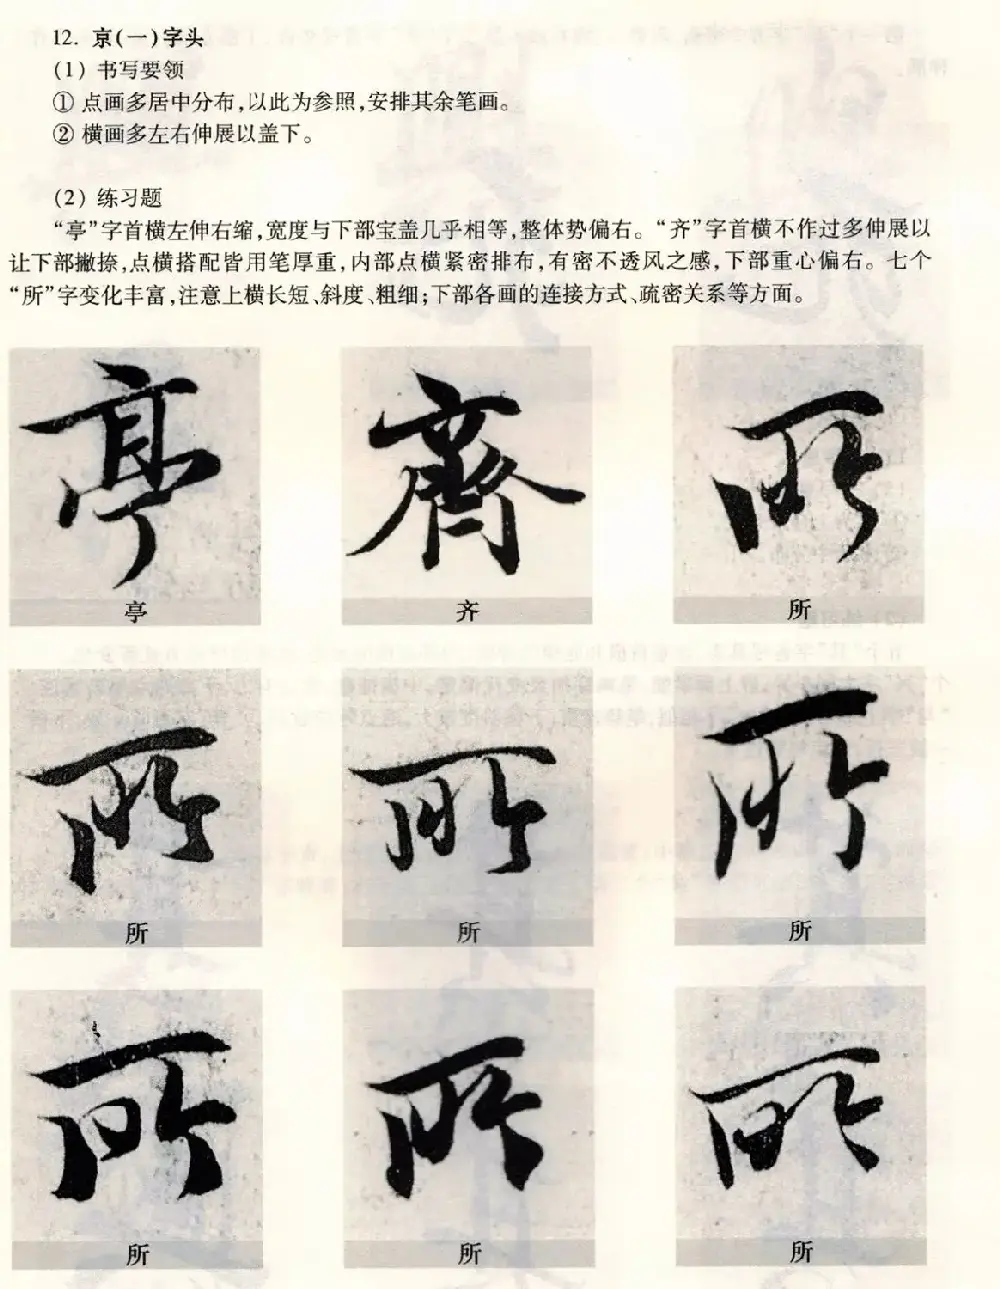 12. 京(一)字头
(1) 书写要领
① 点画多居中分布,以此为参照,安排其余笔画。
② 横画多左右伸展以盖下。
(2) 练习题
“亭”字首横左伸右缩,宽度与下部宝盖几乎相等,整体势偏右。“齐”字首横不作过多伸展以
让下部撇捺,点横搭配皆用笔厚重,内部点横紧密排布,有密不透风之感,下部重心偏右。七个
“所”字变化丰富,注意上横长短、斜度、粗细;下部各画的连接方式、疏密关系等方面。
亭 齊 所
亭 齐 所
所 所 所
所 所 所
所 所 所
所 所 所